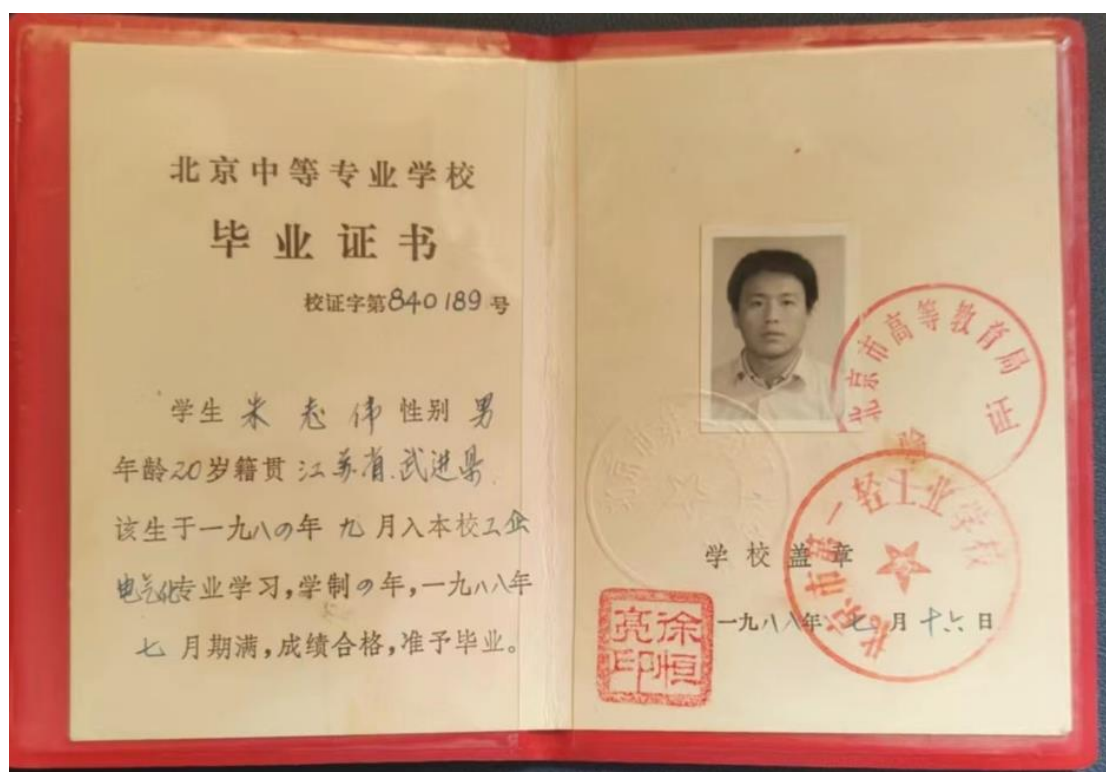 北京中等专业学校
毕业证书
校证字第840189号
学生 朱志伟 性别 男
年龄20岁籍贯 江苏省武进县
该生于一九八四年九月入本校工企
电气化专业学习,学制四年,一九八八年
七月期满,成绩合格,准予毕业。
北京市高等教育局
验证
北京市第一轻工业学校
学校盖章
一九八八年七月十六日
徐恒亮印